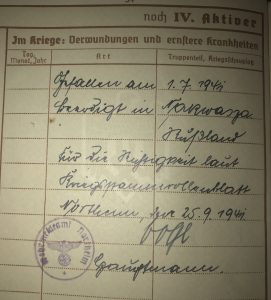 noch IV. Aktiver
Im Kriege: Verwundungen und ernstere Krankheiten
Tag, Monat, Jahr
Art
Truppenteil, Kriegslazarett
Gefallen am 1.7.1941
beerdigt in
Rußland
Für die Richtigkeit laut
Kriegsstammrollenblatt
Northeim, den 25.9.1941
Hauptmann.